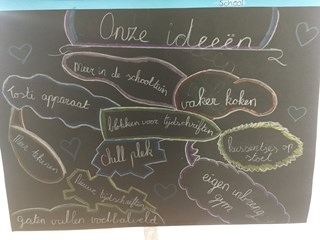 School
Onze ideeën
Meer in de schooltuin
Tosti apparaat
vaker koken
blokken voor tijdschriften
kussentjes op
stoel
Meer tekenen
chill plek
nieuwe tijdschriften
eigen inbreng
gym
gaten vullen voetbalveld